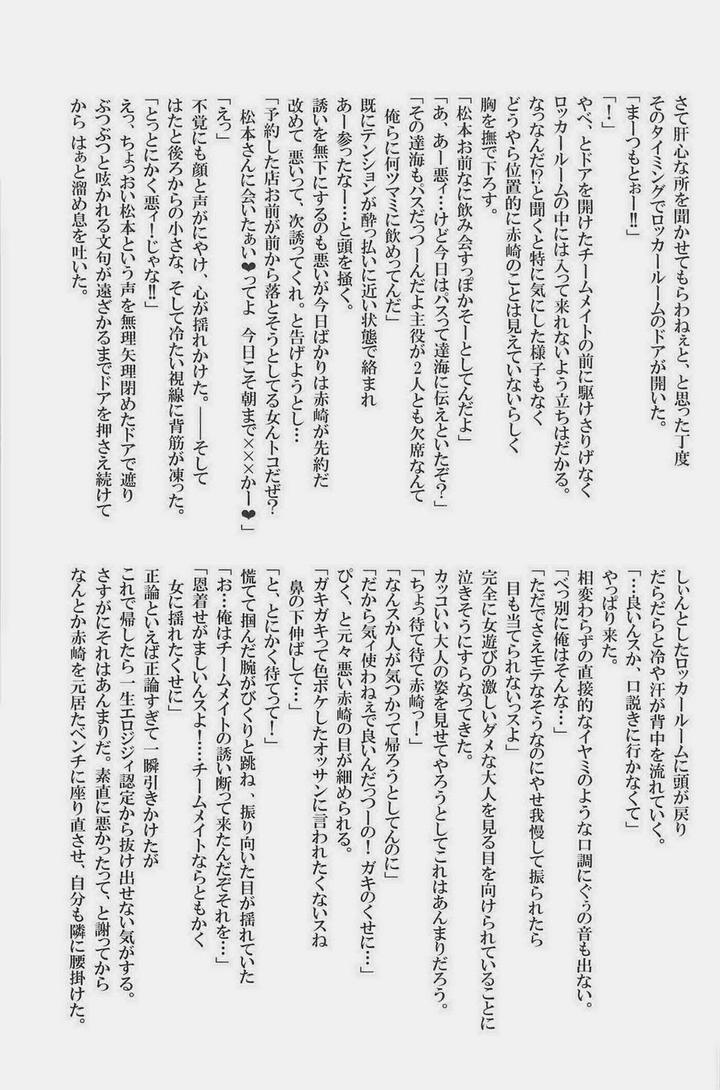 さて肝心な所を聞かせてもらわねぇと、と思った丁度
そのタイミングでロッカールームのドアが開いた。
「まーつもとぉー!!」
「!」
やべ、とドアを開けたチームメイトの前に駆けさりげなく
ロッカールームの中には入って来れないよう立ちはだかる。
なっなんだ!?と聞くと特に気にした様子もなく
どうやら位置的に赤崎のことは見えていないらしく
胸を撫で下ろす。
「松本お前なに飲み会すっぽかそーとしてんだよ」
「あ、あー悪ィ…けど今日はパスって達海に伝えといたぞ?」
「その達海もパスだっつーんだよ主役が2人とも欠席なんて
俺らに何ツマミに飲めってんだ」
既にテンションが酔っ払いに近い状態で絡まれ
あー参ったなー…と頭を掻く。
誘いを無下にするのも悪いが今日ばかりは赤崎が先約だ
改めて 悪いって、次誘ってくれ。と告げようとし…
「予約した店お前が前から落とそうとしてる女んトコだぜ?
松本さんに会いたぁい♥ってよ 今日こそ朝まで×××かー♥」
「えっ」
不覚にも顔と声がにやけ、心が揺れかけた。――そして
はたと後ろからの小さな、そして冷たい視線に背筋が凍った。
「とっとにかく悪ィ!じゃな!!」
えっ、ちょっおい松本という声を無理矢理閉めたドアで遮り
ぶつぶつと呟かれる文句が遠ざかるまでドアを押さえ続けて
から はぁと溜め息を吐いた。
しぃんとしたロッカールームに頭が戻り
だらだらと冷や汗が背中を流れていく。
「…良いんスか、口説きに行かなくて」
やっぱり来た。
相変わらずの直接的なイヤミのような口調にぐぅの音も出ない。
「べっ別に俺はそんな…」
「ただでさえモテなそうなのにやせ我慢して振られたら
目も当てられないっスよ」
完全に女遊びの激しいダメな大人を見る目を向けられていることに
泣きそうにすらなってきた。
カッコいい大人の姿を見せてやろうとしてこれはあんまりだろう。
「ちょっ待て待て赤崎っ!」
「なんスか人が気つかって帰ろうとしてんのに」
「だから気ィ使わねぇで良いんだっつーの!ガキのくせに…」
ぴく、と元々悪い赤崎の目が細められる。
「ガキガキって色ボケしたオッサンに言われたくないスね
鼻の下伸ばして…」
「と、とにかく待てって!」
慌てて掴んだ腕がびくりと跳ね、振り向いた目が揺れていた
「お…俺はチームメイトの誘い断って来たんだぞそれを…」
「恩着せがましいんスよ!……チームメイトならともかく
女に揺れたくせに」
正論といえば正論すぎて一瞬引きかけたが
これで帰したら一生エロジジィ認定から抜け出せない気がする。
さすがにそれはあんまりだ。素直に悪かったって、と謝ってから
なんとか赤崎を元居たベンチに座り直させ、自分も隣に腰掛けた。